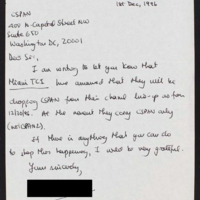 1st Dec, 1996
CSPAN
400 N. Capitol Street NW
Suite 650
Washington DC, 20001
Dear Sir,
I am writing to let you know that
Miami TCI have announced that they will be
dropping CSPAN from their channel line-up as from
12/31/96. At the moment they carry CSPAN only
(no CSPAN2).
If there is anything that you can do
to stop this happening, I would be very grateful.
Yours sincerely,